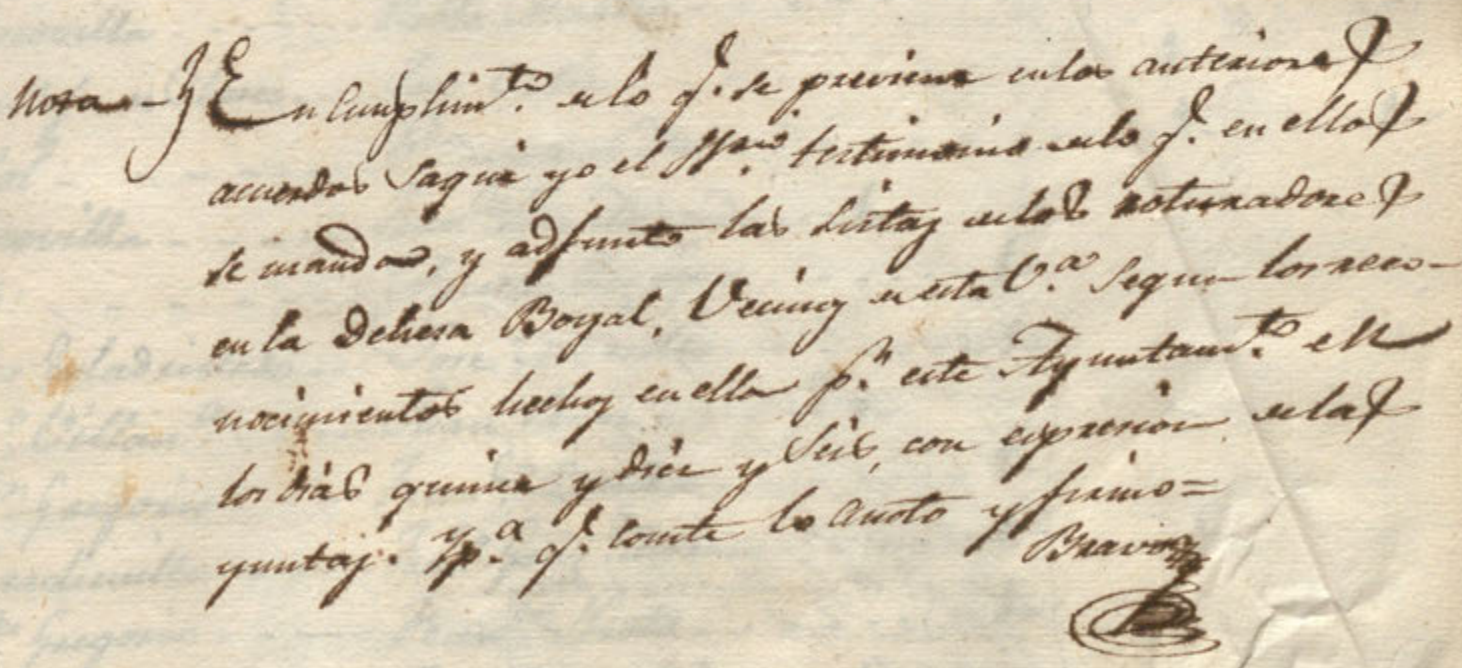 Nota - } En Cumplim.to de lo q.e se previene en los anteriores
acuerdos saqué yo el SS.rio testimonio de lo q.e en ellos
se manda, y adjunto las listas de los roturadores
en la Dehesa Boyal, Vecinos de esta V.a segun los reco-
nocimientos hechos en ella p.r este Ayuntam.to en
los dias quince y diez y seis, con expresion de las
yuntas. Y p.a q.e conste lo anoto y firmo=
Bravo